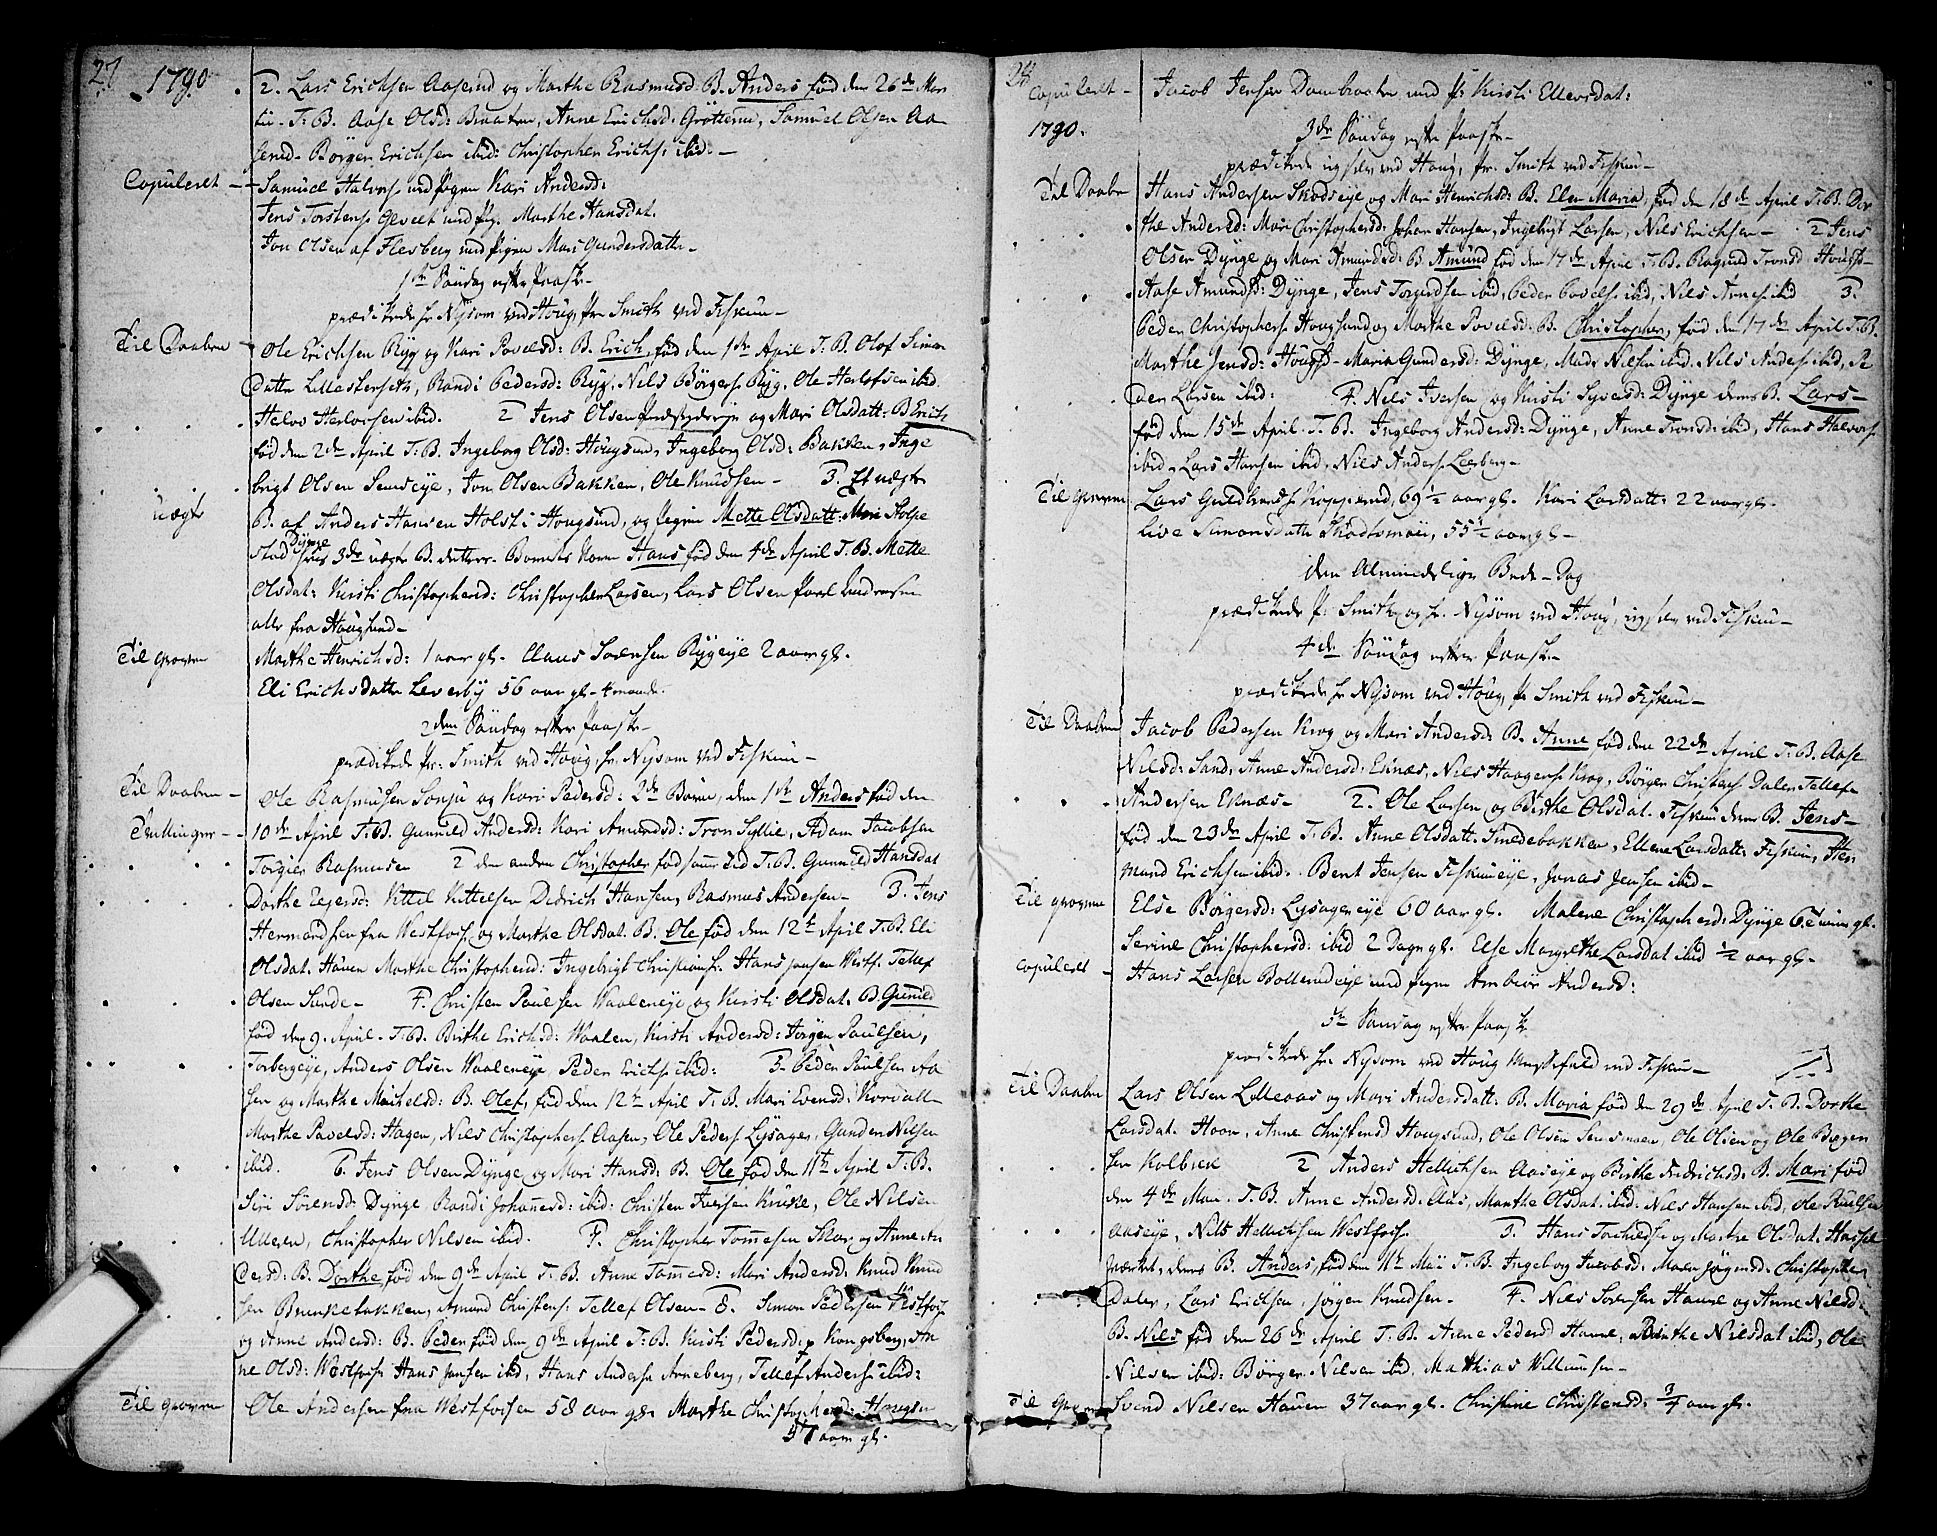 27 1790
2. Lars Erichsen Aaserud og Marthe Rasmusd: B. Anders fød den 26de Mar
tii - T. B. Aase Olsd: Braaten, Anne Erichsd: Grötterud, Samuel Olsen Aa
serud - Börger Erichsen ibid: Christopher Erichs: ibid: -
Copuleret - Samuel Halvors. med pigen Kari Andersd:
Jens Torstens. Gevelt med pig. Marthe Hansdat.
Jon Olsen af Flesberg med pigen Mari Gundersdatter -
1ste Söndag efter Paaske -
prædikede hr Nysom ved Houg, hr Smith ved Fiskum -
Til Daaben - Ole Erichsen Ryg og Kari Povelsd: B. Erich, fød den 1ste April T. B. Olof Simon
Datter Lillesterseth, Randi Pedersd: Ryg, Nils Börgers. Ryg, Ole Herlofsen ibid.
Helvor Herlovsen ibid. 2 Jens Olsen Præstgrdeeje og Mari Olsdatt: B. Erich
fød den 2den April T. B. Ingeborg Olsd: Hougsund, Ingeborg Olsd: Bakken, Inge
brigt Olsen Semseye, Jon Olsen Bakken, Ole Knudsen - 3. Et uægte
uægte B. af Anders Hansen Holst i Hougsund, og pigen Mette Olsdatt: Stolpe
stad Dynge 3die uægte B. Barnets Navn Hans fød den 4de April T. B. Mette
Olsdat: Kirsti Christophersd: Christopher Larsen, Lars Olsen Povel Andersen
alle fra Hougsund -
Til graven Marthe Henrichsd: 1 aar gl. Claus Sörensen Rygeye 2 aar gl.
Eli Erichsdatter Leverby 56 aar gl.
2den Söndag efter Paaske -
prædikede hr: Smith ved Houg, hr. Nysom ved Fiskum -
Til Daaben - Ole Rasmusen Sonju og Kari Pedersd: 2de Börn, den 1ste Anders fød den
Tvillinger - 10de April T. B. Gunnild Andersd: Kari Amundsd: Tron Syllie, Adam Jacobsen
Torgier Rasmusen 2 den anden Christopher fød samme tid T. B. Gunnild Hansdat
Dorthe Egersd: Kittil Kittelsen Didrich Hansen, Rasmus Andersen - 3. Jens
Hermandsen fra Westfos. og Marthe Olsdat. B. Ole fød den 12te April T. B. Eli
Olsdat. Hauen Marthe Christophersd: Ingebrigt Christians. Hans Jansen Westf. Tellef
Olsen Sande - 4. Christen Paulsen Waaleneye og Kirsti Olsdat. B. Gunild
fød den 9. April - T. B. Birthe Erichsd: Waalen, Kirsti Andersd: Jörgen Paulsen,
Torbergeye, Anders Olsen Waaleneye, Peder Erichs. ibid: 5. Peder Paulsen Aa
sen og Marthe Michelsd: B. Olef, fød den 12te April T. B. Mari Evensd: Kordall
Marthe Pavelsd: Hagen, Nils Christophers. Aasen, Ole Peders. Lysager, Gunder Nilsen
ibid. 6. Jens Olsen Dynge og Mari Hansd: B. Ole fød den 11te April T. B.
Siri Sörensd: Dynge Randi Johanesd: ibid: Christen Iversen Knive, Ole Nilsen
Ulleren, Christopher Nilsen ibid. 7. Christopher Tomesen Skar og Anne An
dersd: B. Dorthe, fød den 9de April T. B. Anne Tommesd: Mari Andersd: Knud Knud
sen Brunkebakken, Amund Christens: Tellef Olsen - 8. Simon Pedersen Vestfos.
og Anne Andersd: B. Peder fød den 9de April T. B. Kirsti Pedersd: Kongsberg, An
ne Olsd: Westfos. Hans Jansen ibid, Hans Anders. Arneberg, Tellef Anders. ibid:
Til graven Ole Andersen fra Westfossen 58 aar gl. Marthe Christophersd: Hougsu
37 aar gl.
28
Copuleret - Jacob Jensen Dambraaten med p: Kirsti Ellevsdat:
1790.
3de Söndag efter Paaske -
prædikede ved Houg, hr. Smith ved Fiskum -
Til Daaben Hans Andersen Skodseye og Mari Henrichsd: B. Elen Maria, fød den 18de April T. B. Dor
the Andersd: Mari Christophersd: Johan Hansen, Ingebrigt Larsen, Nils Erichsen - 2 Jens
Olsen Dynge og Mari Amundsd: B. Amund fød den 17de April T. B. Ragnild Tronsd Hougs.
Aase Amundsd: Dynge, Jens Torgiersen ibid, Peder Povels. ibid, Nils Arnes. ibid 3.
Peder Christophers. Hougsund og Marthe Povelsd: B. Christopher, fød den 17de April T. B.
Marthe Jensd: Hougs. - Maria Gundersd: Dynge, Mads Nilsen ibid. Nils Anders. ibid, Pe
der Larsen ibid: 4. Nils Iversen og Kirsti Syversd: Dynge deres B. Lars -
fød den 15de April. T. B. Ingeborg Andersd: Dynge, Anne Tronsd: ibid, Hans Halvors.
ibid, Lars Hansen ibid, Nils Anders. Leerberg -
Til graven Lars Guldbrands. Kopperud, 69 1/2 aar gl. Kari Larsdatt: 22 aar gl.
Live Simonsdatter Skodtsmoei, 55 1/2 aar gl -
den Almindelige Bede-Dag
prædikede hr: Smith og hr. Nysom ved Houg, ved Fiskum -
4de Söndag efter Paaske -
prædikede hr Nysom ved Houg, hr Smith ved Fiskum -
Til Daaben Jacob Pedersen Krog og Mari Andersd: B. Anne fød den 22de April T. B. Aase
Nilsd: Sand, Anne Andersd: Eknæs, Nils Haagens. Krog, Börger Christens. Dalen, Tellef
Andersen Eknæs - 2. Ole Larsen og Birthe Olsdat. Fiskum deres B. Jens -
fød den 23de April T. B. Anne Olsdatt. Smedebakken, Ellene Larsdatt: Fiskum, Her
mand Erichsen ibid. Bent Jensen Fiskumeye, Jonas Jensen ibid -
Til graven Else Börgersd: Lysagereye 60 aar gl. Malene Christophersd: Dynge 6 timer gl.
Serine Christophersd: ibid 2 Dage gl. Else Margrethe Larsdat ibid 1/2 aar gl -
Copuleret - Hans Larsen Bollerudeye med pigen Ambiör Andersd:
5te Söndag efter Paaske
prædikede hr Nysom ved Houg Messefald ved Fiskum -
Til Daaben Lars Olsen Lilleaas og Mari Andersdatt: B. Maria fød den 29de April T. B. Dorthe
Larsdat. Hoon, Anne Christensd Hougsund, Ole Olsen Semsmoen, Ole Olsen og Ole Börgen
sen Kolbræk 2 Anders Hellichsen Aaseye og Birthe Fredrichsd: B. Mari fød
den 4de Maii. T. B. Anne Andersd: Aas, Marthe Olsdat. ibid. Nils Hansen ibid, Ole Paulsen
Aaseye, Nils Hellichsen Westfos. 3. Hans Torchilds. og Marthe Olsdat. Hassel
værket, deres B. Anders, fød den 11te Maii T. B. Ingeborg Jacobsd: Maren Jörgensd: Christopher
Dalen, Lars Erichsen, Jörgen Knudsen - 4. Nils Sörensen Haure og Anne Nilsd:
B. Nils fød den 26de April T. B. Anne Pedersd Haure, Birthe Nilsdat ibid, Ole
Nilsen ibid: Börger Nilsen ibid, Matthias Willumsen -
Til Graven Svend Nilsen Hauen 37 aar gl. Christine Christensd: 3/4 aar gl.